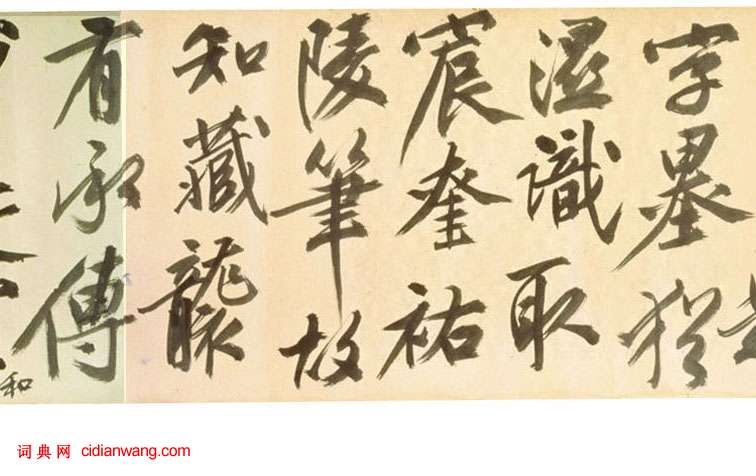 字墨猶
濕識取
宸奎祐
陵筆故
知藏龍
有承傳
和
词典网 cidianwang.com